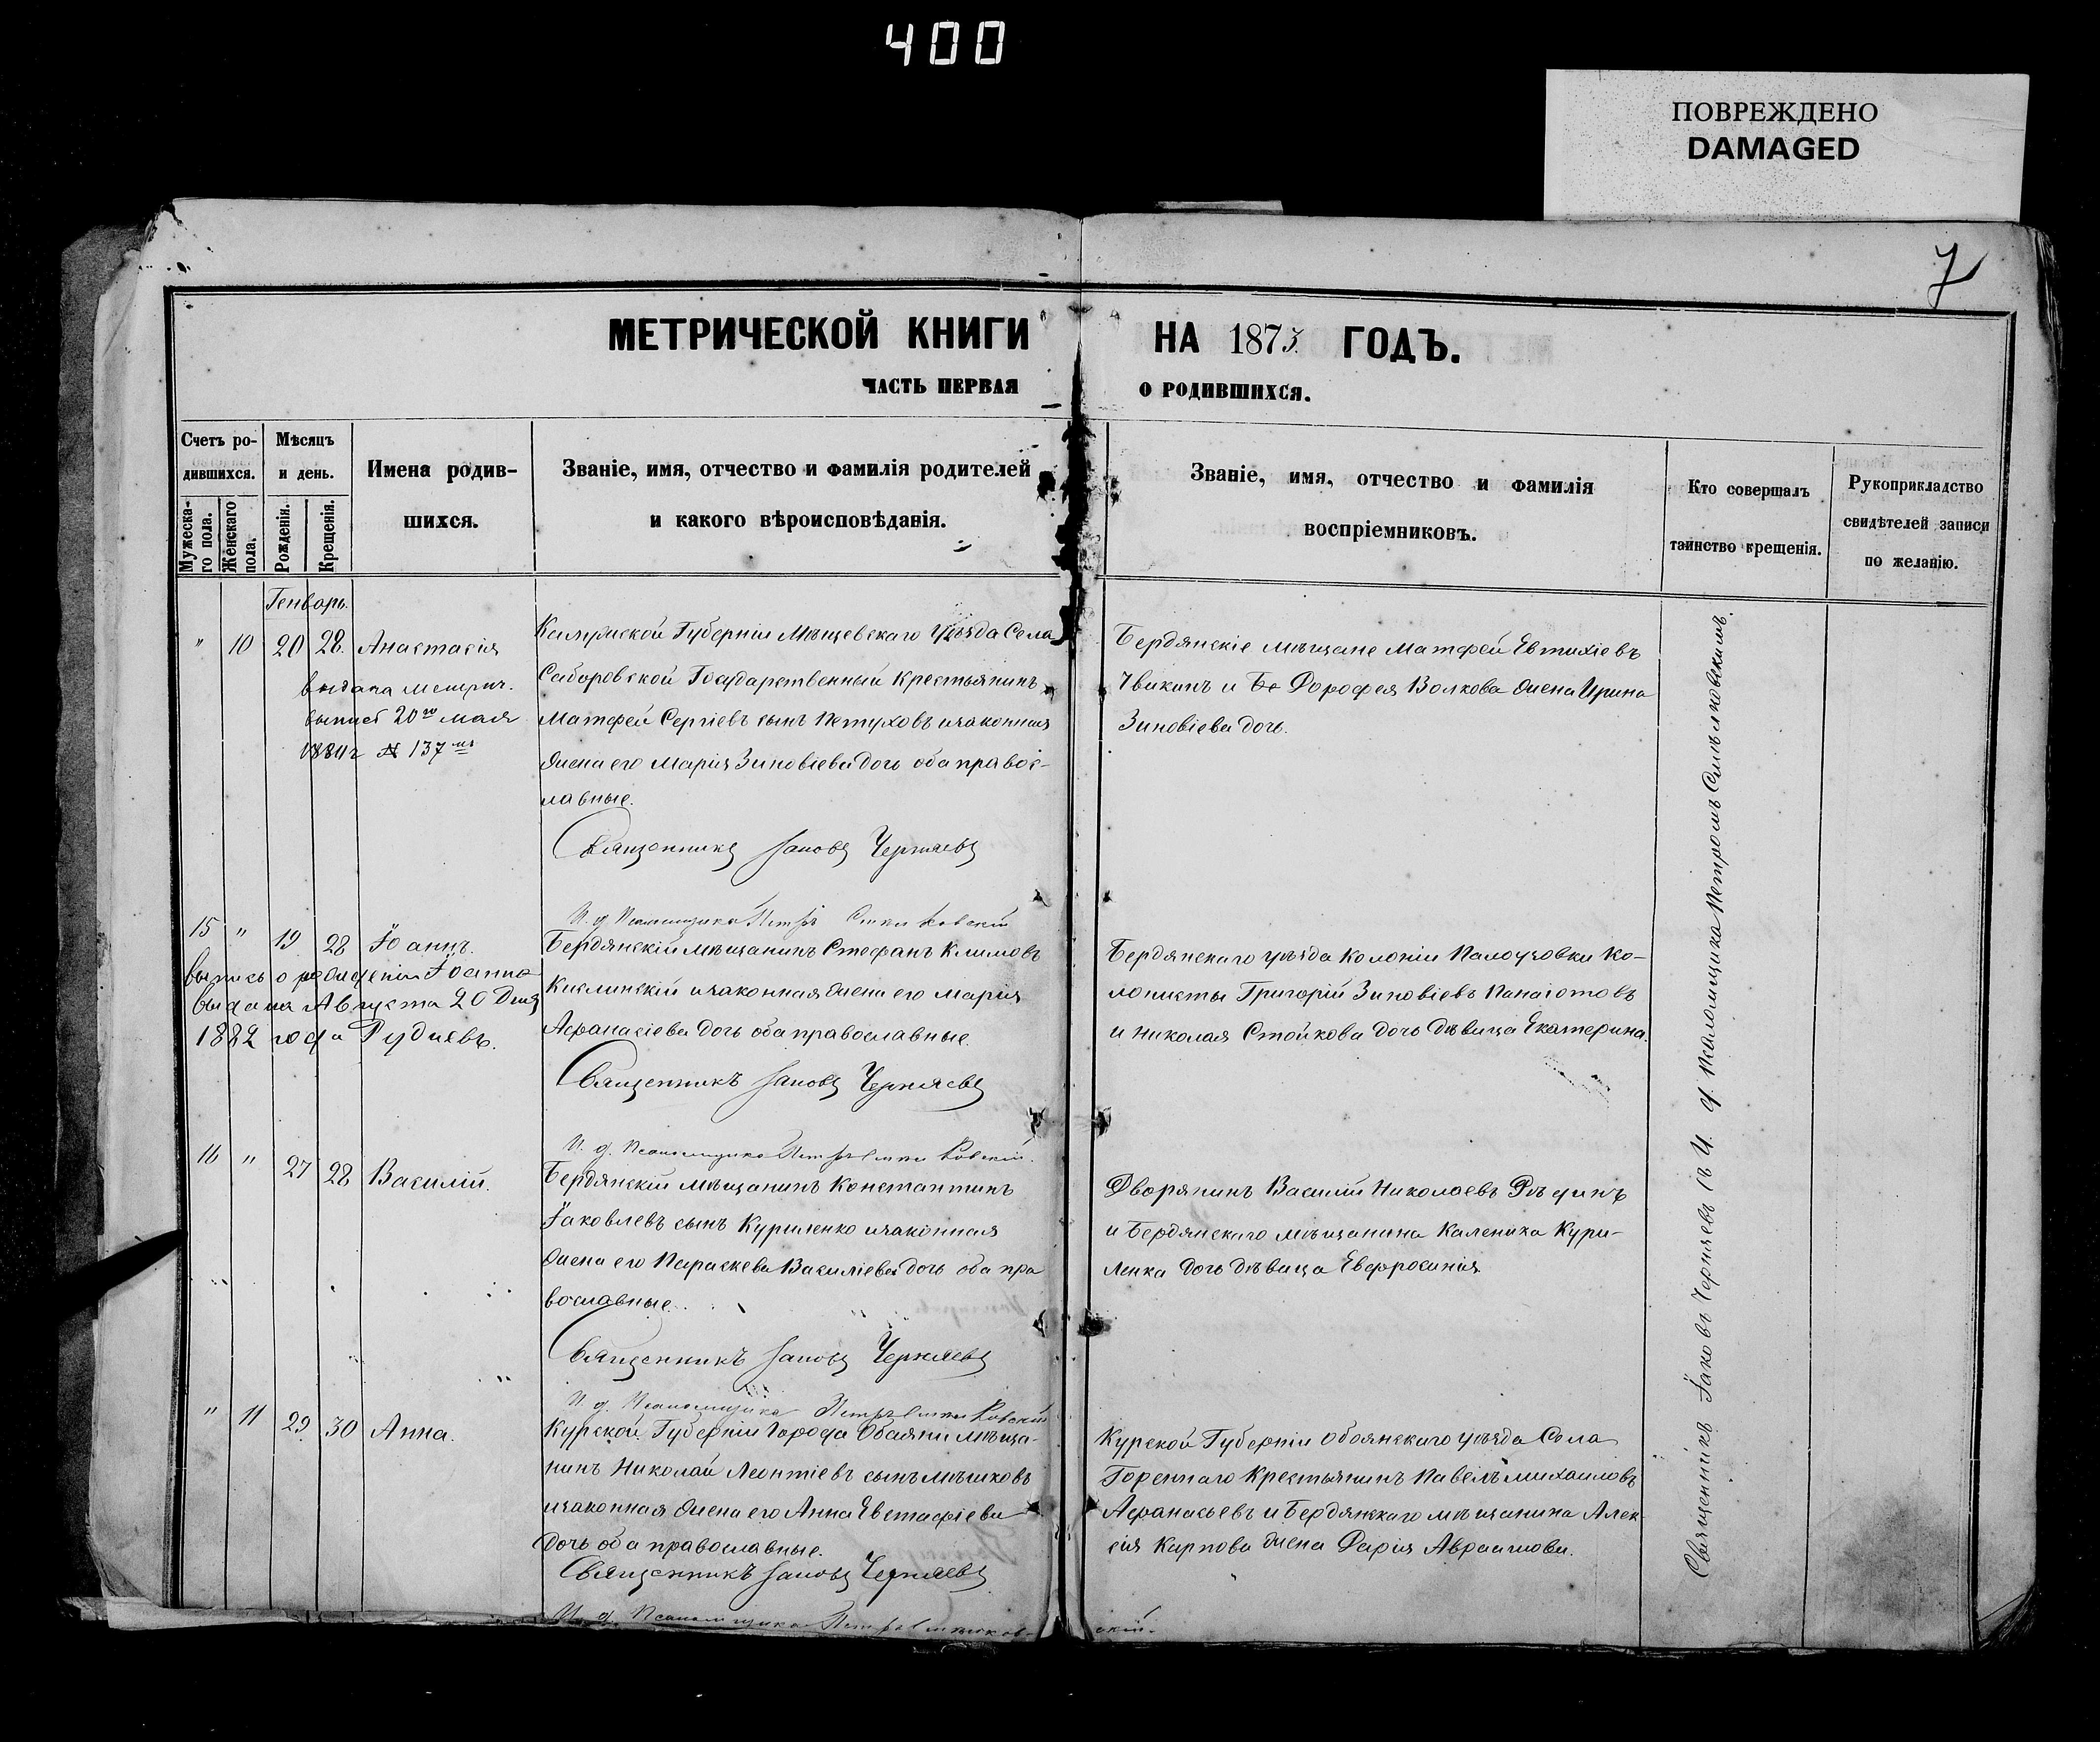 400
ПОВРЕЖДЕНО
DAMAGED
7
МЕТРИЧЕСКОЙ КНИГИ НА 1873 ГОДЪ.
ЧАСТЬ ПЕРВАЯ О РОДИВШИХСЯ.
Счетъ ро-
дившихся.
Мужеска-
го пола.
Женскаго
пола.
Мѣсяцъ
и день.
Рожденія.
Крещенія.
Имена родив-
шихся.
Званіе, имя, отчество и фамилія родителей
и какого вѣроисповѣданія.
Званіе, имя, отчество и фамилія
воспріемниковъ.
Кто совершалъ
таинство крещенія.
Рукоприкладство
свидѣтелей записи
по желанію.
Генварь.
" 10 20 28. Анастасія
выдана метрич.
выпись 20го мая
№ 137
Калужской Губерніи Мѣщевскаго Уѣзда Села
Государственный Крестьянинъ
Матфей Сергіевъ сынъ Петуховъ и законная
жена его Марія Зиновіева дочь оба правос-
лавные.
Священникъ Іаковъ Черняевъ
И. д. Псаломщика Петръ
Бердянскіе мѣщане Матфей Евтихіевъ
Чвикинъ и Дорофея Волкова жена Ирина
Зиновіева дочь.
15 " 19 28 Іоаннъ.
выпись о рожденіи Іоанна
выдана Августа 20 дня
1882 года Рудневъ.
Бердянскій мѣщанинъ Стефанъ Климовъ
Кислинскій и законная жена его Марія
Афанасіева дочь оба православные.
Священникъ Іаковъ Черняевъ
И. д. Псаломщика Петръ
Бердянскаго уѣзда Колоніи Палоузовки Ко-
лонисты Григорій Зиновіевъ Панаіотовъ
и Николая Стойкова дочь дѣвица Екатерина.
16 " 27 28 Василій.
Бердянскій мѣщанинъ Константинъ
Іаковлевъ сынъ Куриленко и законная
жена его Параскева Василіева дочь оба пра
вославные.
Священникъ Іаковъ Черняевъ
И. д. Псаломщика Петръ
Дворянинъ Василій Николаевъ
и Бердянскаго мѣщанина Каленика Кури-
ленка дочь дѣвица Евфросинія
" 11 29 30 Анна.
Курской Губерніи Города Обаяни мѣща-
нинъ Николай Леонтіевъ сынъ Мѣшковъ
и законная жена его Анна Евстафіева
дочь оба православные.
Священникъ Іаковъ Черняевъ
И. д. Псаломщика Петръ
Курской Губерніи Обоянскаго уѣзда Села
Крестьянинъ Павелъ Михаиловъ
Афанасьевъ и Бердянскаго мѣщанина Алек
сія Карпова жена Дарія Авраамова.
Священникъ Іаковъ Черняевъ съ И. д. псаломщика Петромъ